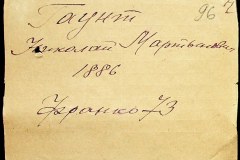 96
Гаунт
Николай Мартынович
1886
73